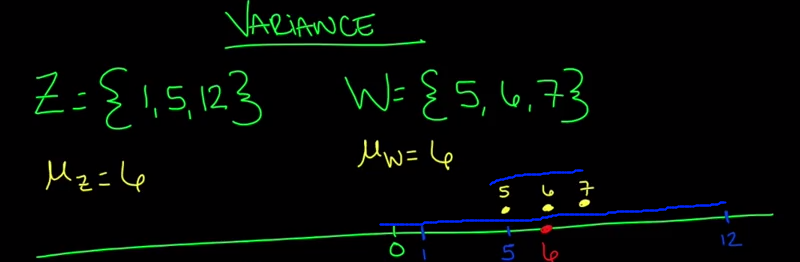 VARIANCE
Z = {1, 5, 12} W = {5, 6, 7}
μz = 6 μw = 6
5 6 7
0 1 5 6 12